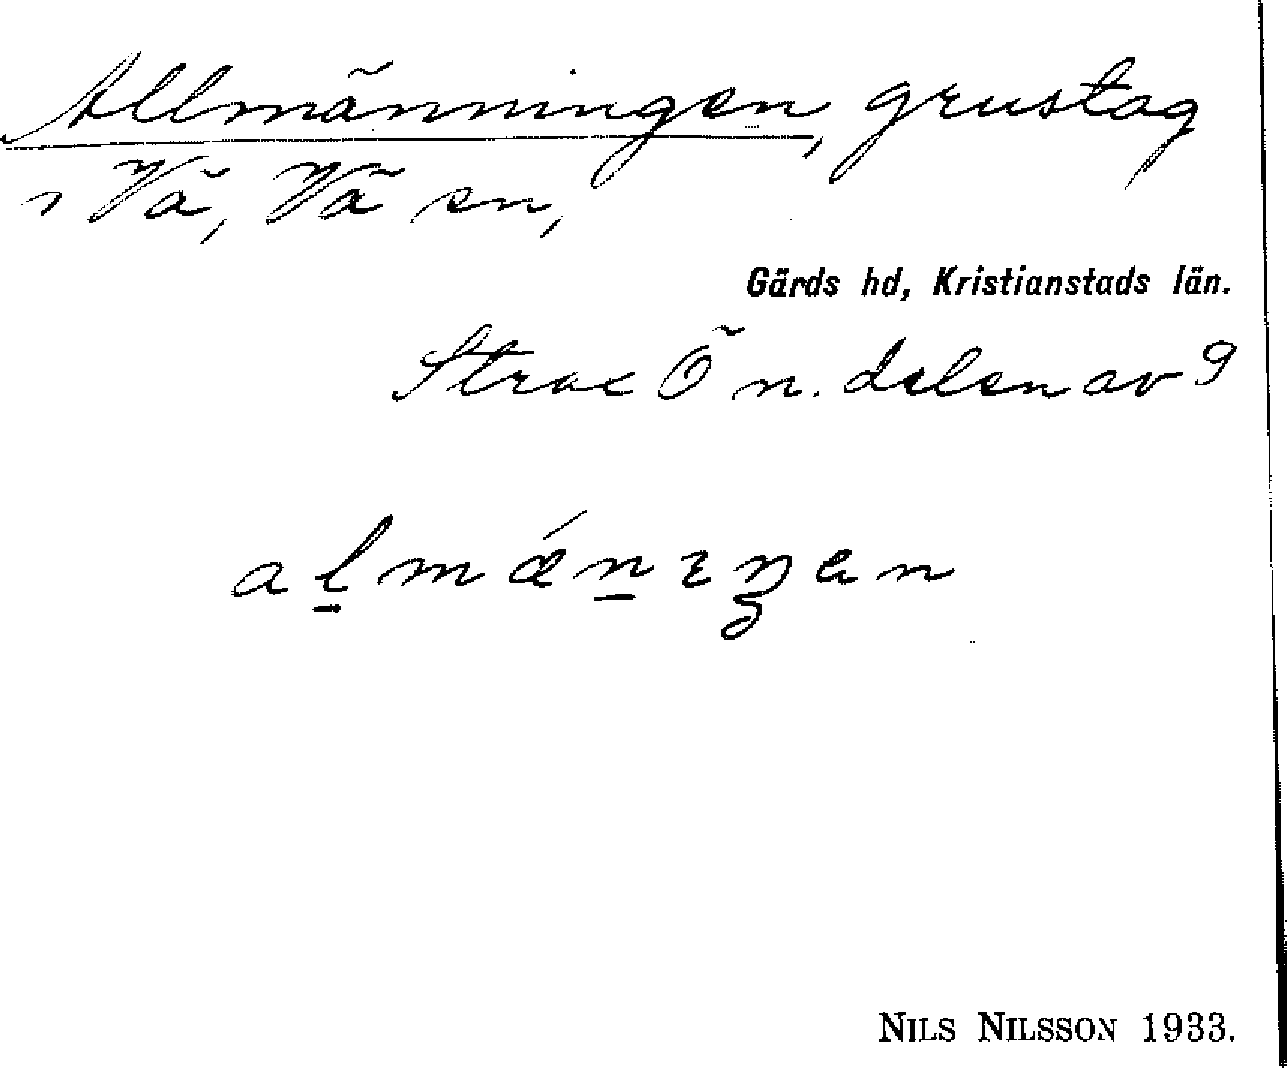 Allmänningen, grustag
i Vä, Vä sn,
Gärds hd, Kristianstads län.
Strax Ö n. delen av 9
al̲mǽn̲ɪŋen
NILS NILSSON 1933.